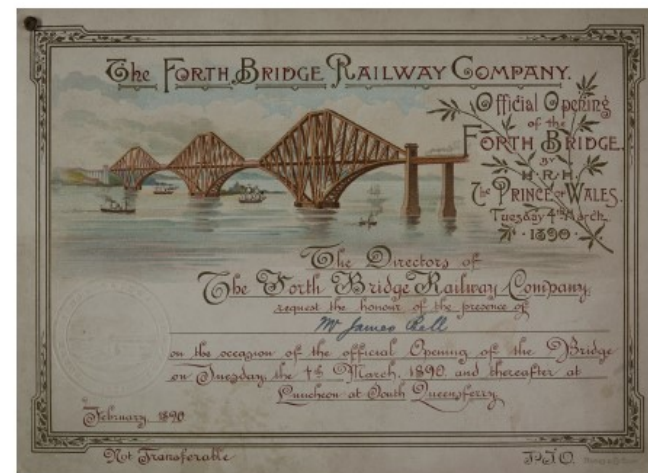 The Forth Bridge Railway Company.
Official Opening
of the
Forth Bridge.
BY
H.R.H.
The Prince of Wales.
Tuesday 4th March.
1890.
The Directors of
The Forth Bridge Railway Company,
request the honour of the presence of
Mr James Bell
on the occasion of the official Opening of the Bridge
on Tuesday, the 4th March, 1890, and thereafter at
Luncheon at South Queensferry.
February, 1890
Not Transferable
P.T.O.